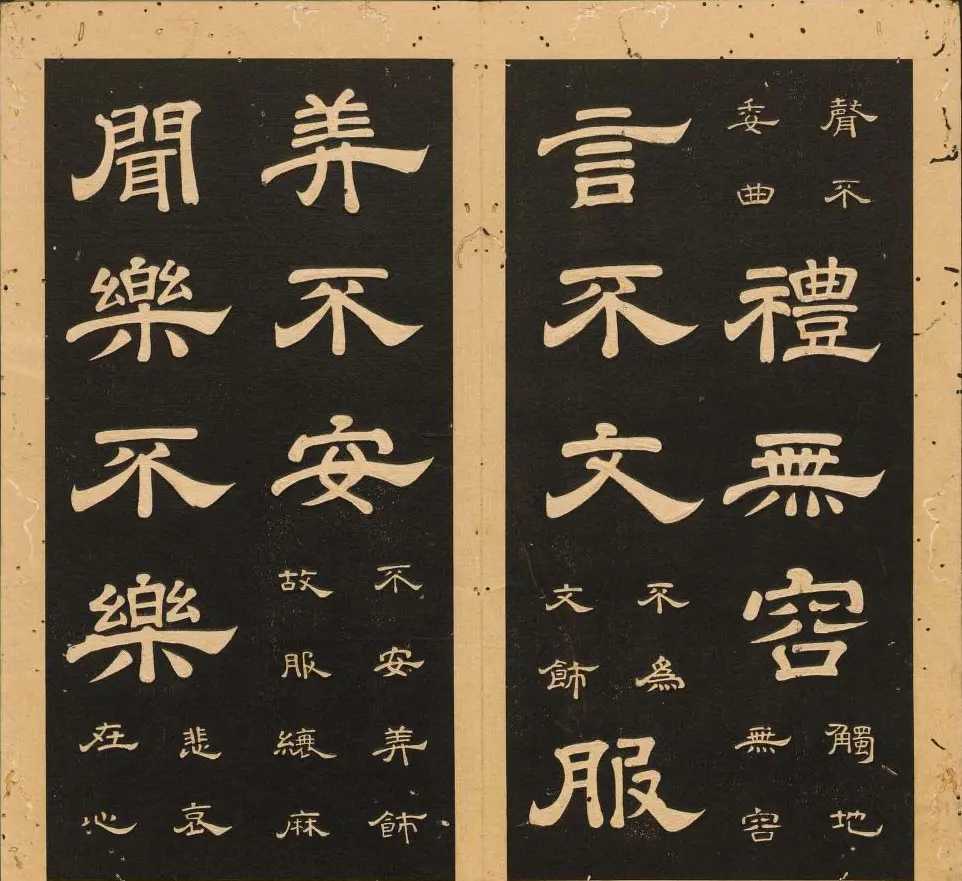 聲不委曲禮無容觸地無容
言不文不爲文飾服
美不安不安美飾故服縗麻
聞樂不樂悲哀在心